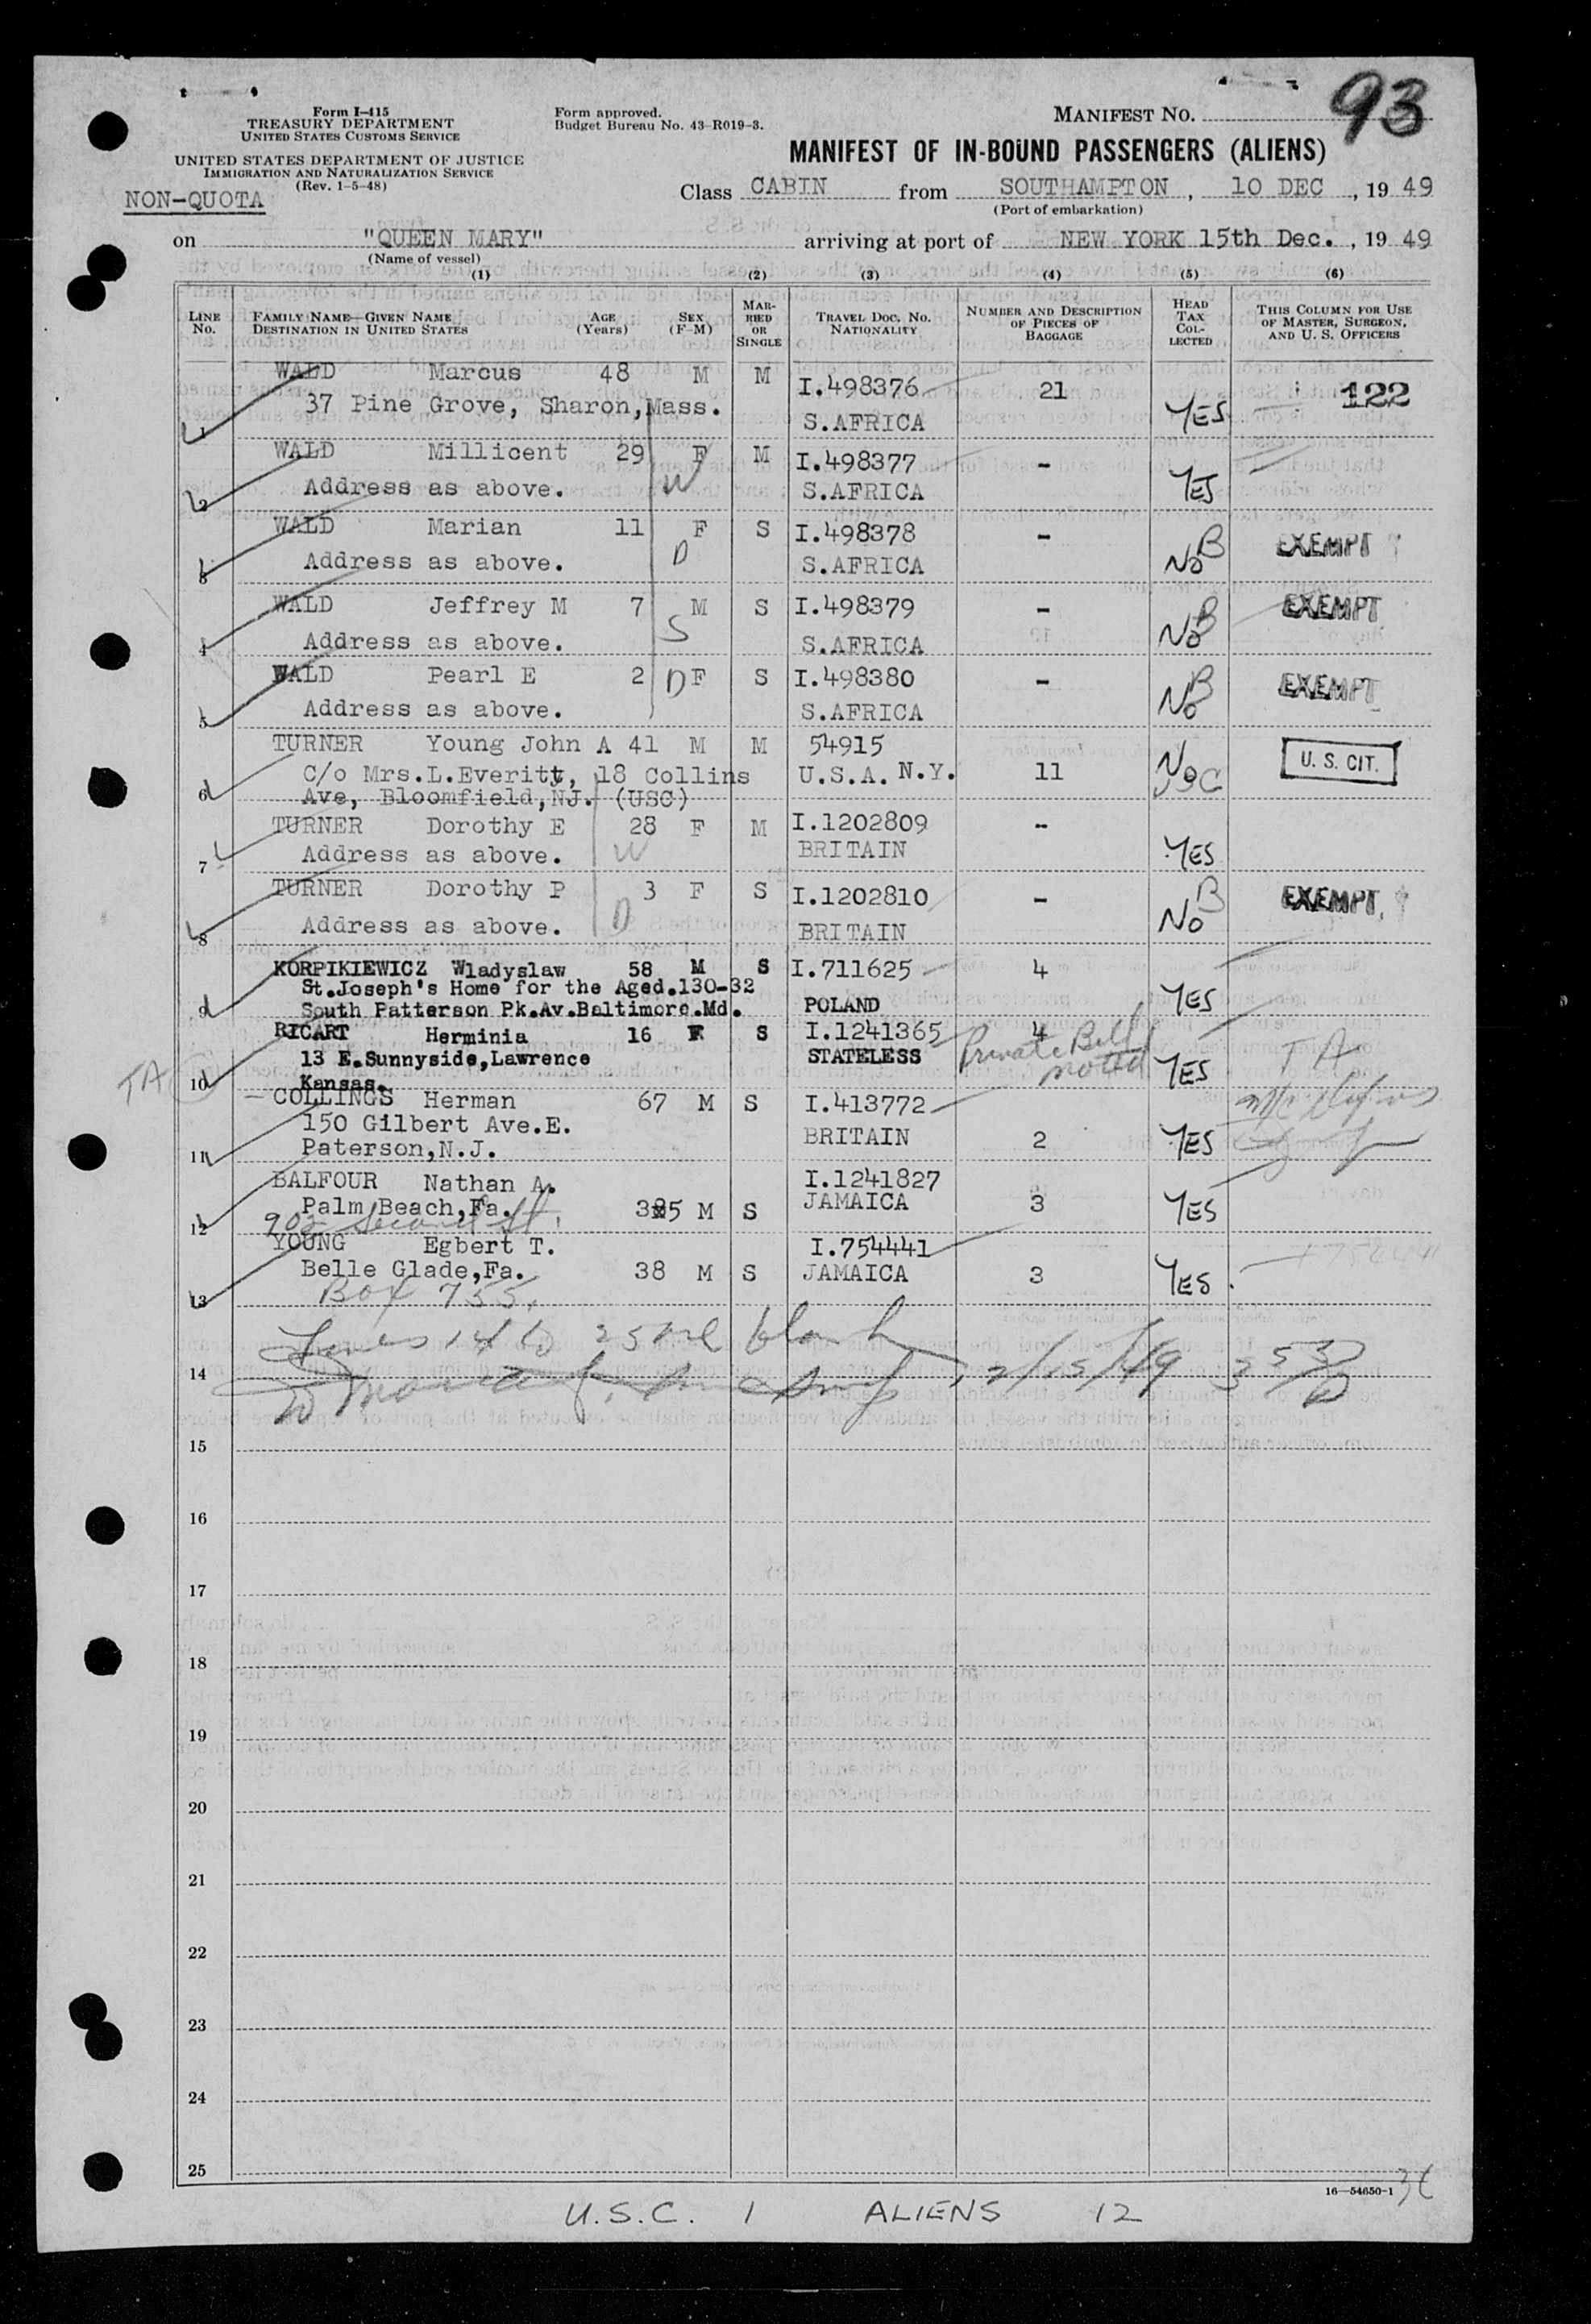 93
Form I-415
TREASURY DEPARTMENT
UNITED STATES CUSTOMS SERVICE
Form approved.
Budget Bureau No. 43-R019-3.
MANIFEST NO.
UNITED STATES DEPARTMENT OF JUSTICE
IMMIGRATION AND NATURALIZATION SERVICE
(Rev. 1-5-48)
NON-QUOTA
MANIFEST OF IN-BOUND PASSENGERS (ALIENS)
Class CABIN from SOUTHAMPTON, 10 DEC, 19 49
(Port of embarkation)
on "QUEEN MARY" arriving at port of NEW YORK 15th Dec., 19 49
(Name of vessel)
(1) (2) (3) (4) (5) (6)
LINE No. FAMILY NAME—GIVEN NAME DESTINATION IN UNITED STATES AGE (Years) SEX (F-M) MARRIED OR SINGLE TRAVEL DOC. NO. NATIONALITY NUMBER AND DESCRIPTION OF PIECES OF BAGGAGE HEAD TAX COLLECTED THIS COLUMN FOR USE OF MASTER, SURGEON, AND U. S. OFFICERS
WALD Marcus 48 M M I.498376 21 122
1 37 Pine Grove, Sharon, Mass. S.AFRICA YES
WALD Millicent 29 F M I.498377 -
2 Address as above. W S.AFRICA YES
WALD Marian 11 F S I.498378 - B EXEMPT
3 Address as above. D S.AFRICA No
WALD Jeffrey M 7 M S I.498379 - B EXEMPT
4 Address as above. S S.AFRICA No
WALD Pearl E 2 D F S I.498380 - B EXEMPT
5 Address as above. S.AFRICA No
TURNER Young John A 41 M M 54915
C/o Mrs.L.Everitt, 18 Collins U.S.A. N.Y. 11 No U. S. CIT.
6 Ave, Bloomfield,NJ. (USC) USC
TURNER Dorothy E 28 F M I.1202809 -
7 Address as above. W BRITAIN YES
TURNER Dorothy P 3 F S I.1202810 - B EXEMPT
8 Address as above. D BRITAIN No
KORPIKIEWICZ Wladyslaw 58 M S I.711625 4
St.Joseph's Home for the Aged.130-32
9 South Patterson Pk.Av.Baltimore.Md. POLAND YES
RICART Herminia 16 F S I.1241365 4
13 E.Sunnyside,Lawrence STATELESS Private Bill noted YES TA
TA 10 Kansas.
COLLINGS Herman 67 M S I.413772
150 Gilbert Ave.E. BRITAIN 2 YES
11 Paterson,N.J.
BALFOUR Nathan A. I.1241827
Palm Beach,Fa. 385 M S JAMAICA 3 YES
12 902 Second St.
YOUNG Egbert T. I.754441
Belle Glade,Fa. 38 M S JAMAICA 3 YES
13 Box 755.
Lines 14 to 25 incl blank
14 12/15/49
15
16
17
18
19
20
21
22
23
24
25
16—54650-1
U.S.C. 1 ALIENS 12